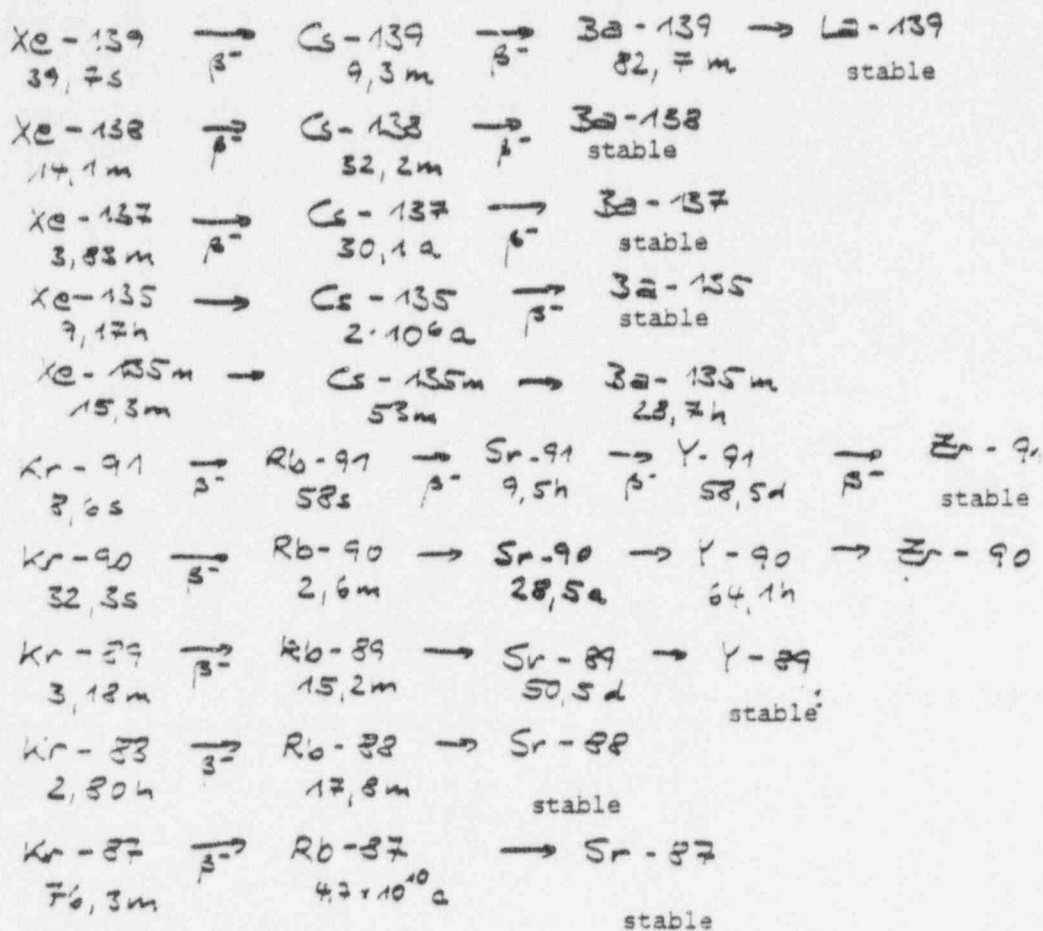 Xe-139 → Cs-139 → Ba-139 → La-139
39,7s β⁻ 9,3m β⁻ 82,7m stable
Xe-138 → Cs-138 → Ba-138
14,1m β⁻ 32,2m β⁻ stable
Xe-137 → Cs-137 → Ba-137
3,83m β⁻ 30,1a β⁻ stable
Xe-135 → Cs-135 → Ba-135
9,17h 2·10⁶a β⁻ stable
Xe-135m → Cs-135m → Ba-135m
15,3m 53m 28,7h
Kr-91 → Rb-91 → Sr-91 → Y-91 → Zr-91
8,6s β⁻ 58s β⁻ 9,5h β⁻ 58,5d β⁻ stable
Kr-90 → Rb-90 → Sr-90 → Y-90 → Zr-90
32,3s β⁻ 2,6m 28,5a 64,1h
Kr-89 → Rb-89 → Sr-89 → Y-89
3,18m β⁻ 15,2m 50,5d stable
Kr-88 → Rb-88 → Sr-88
2,80h β⁻ 17,8m stable
Kr-87 → Rb-87 → Sr-87
76,3m β⁻ 4,7×10¹⁰a
stable